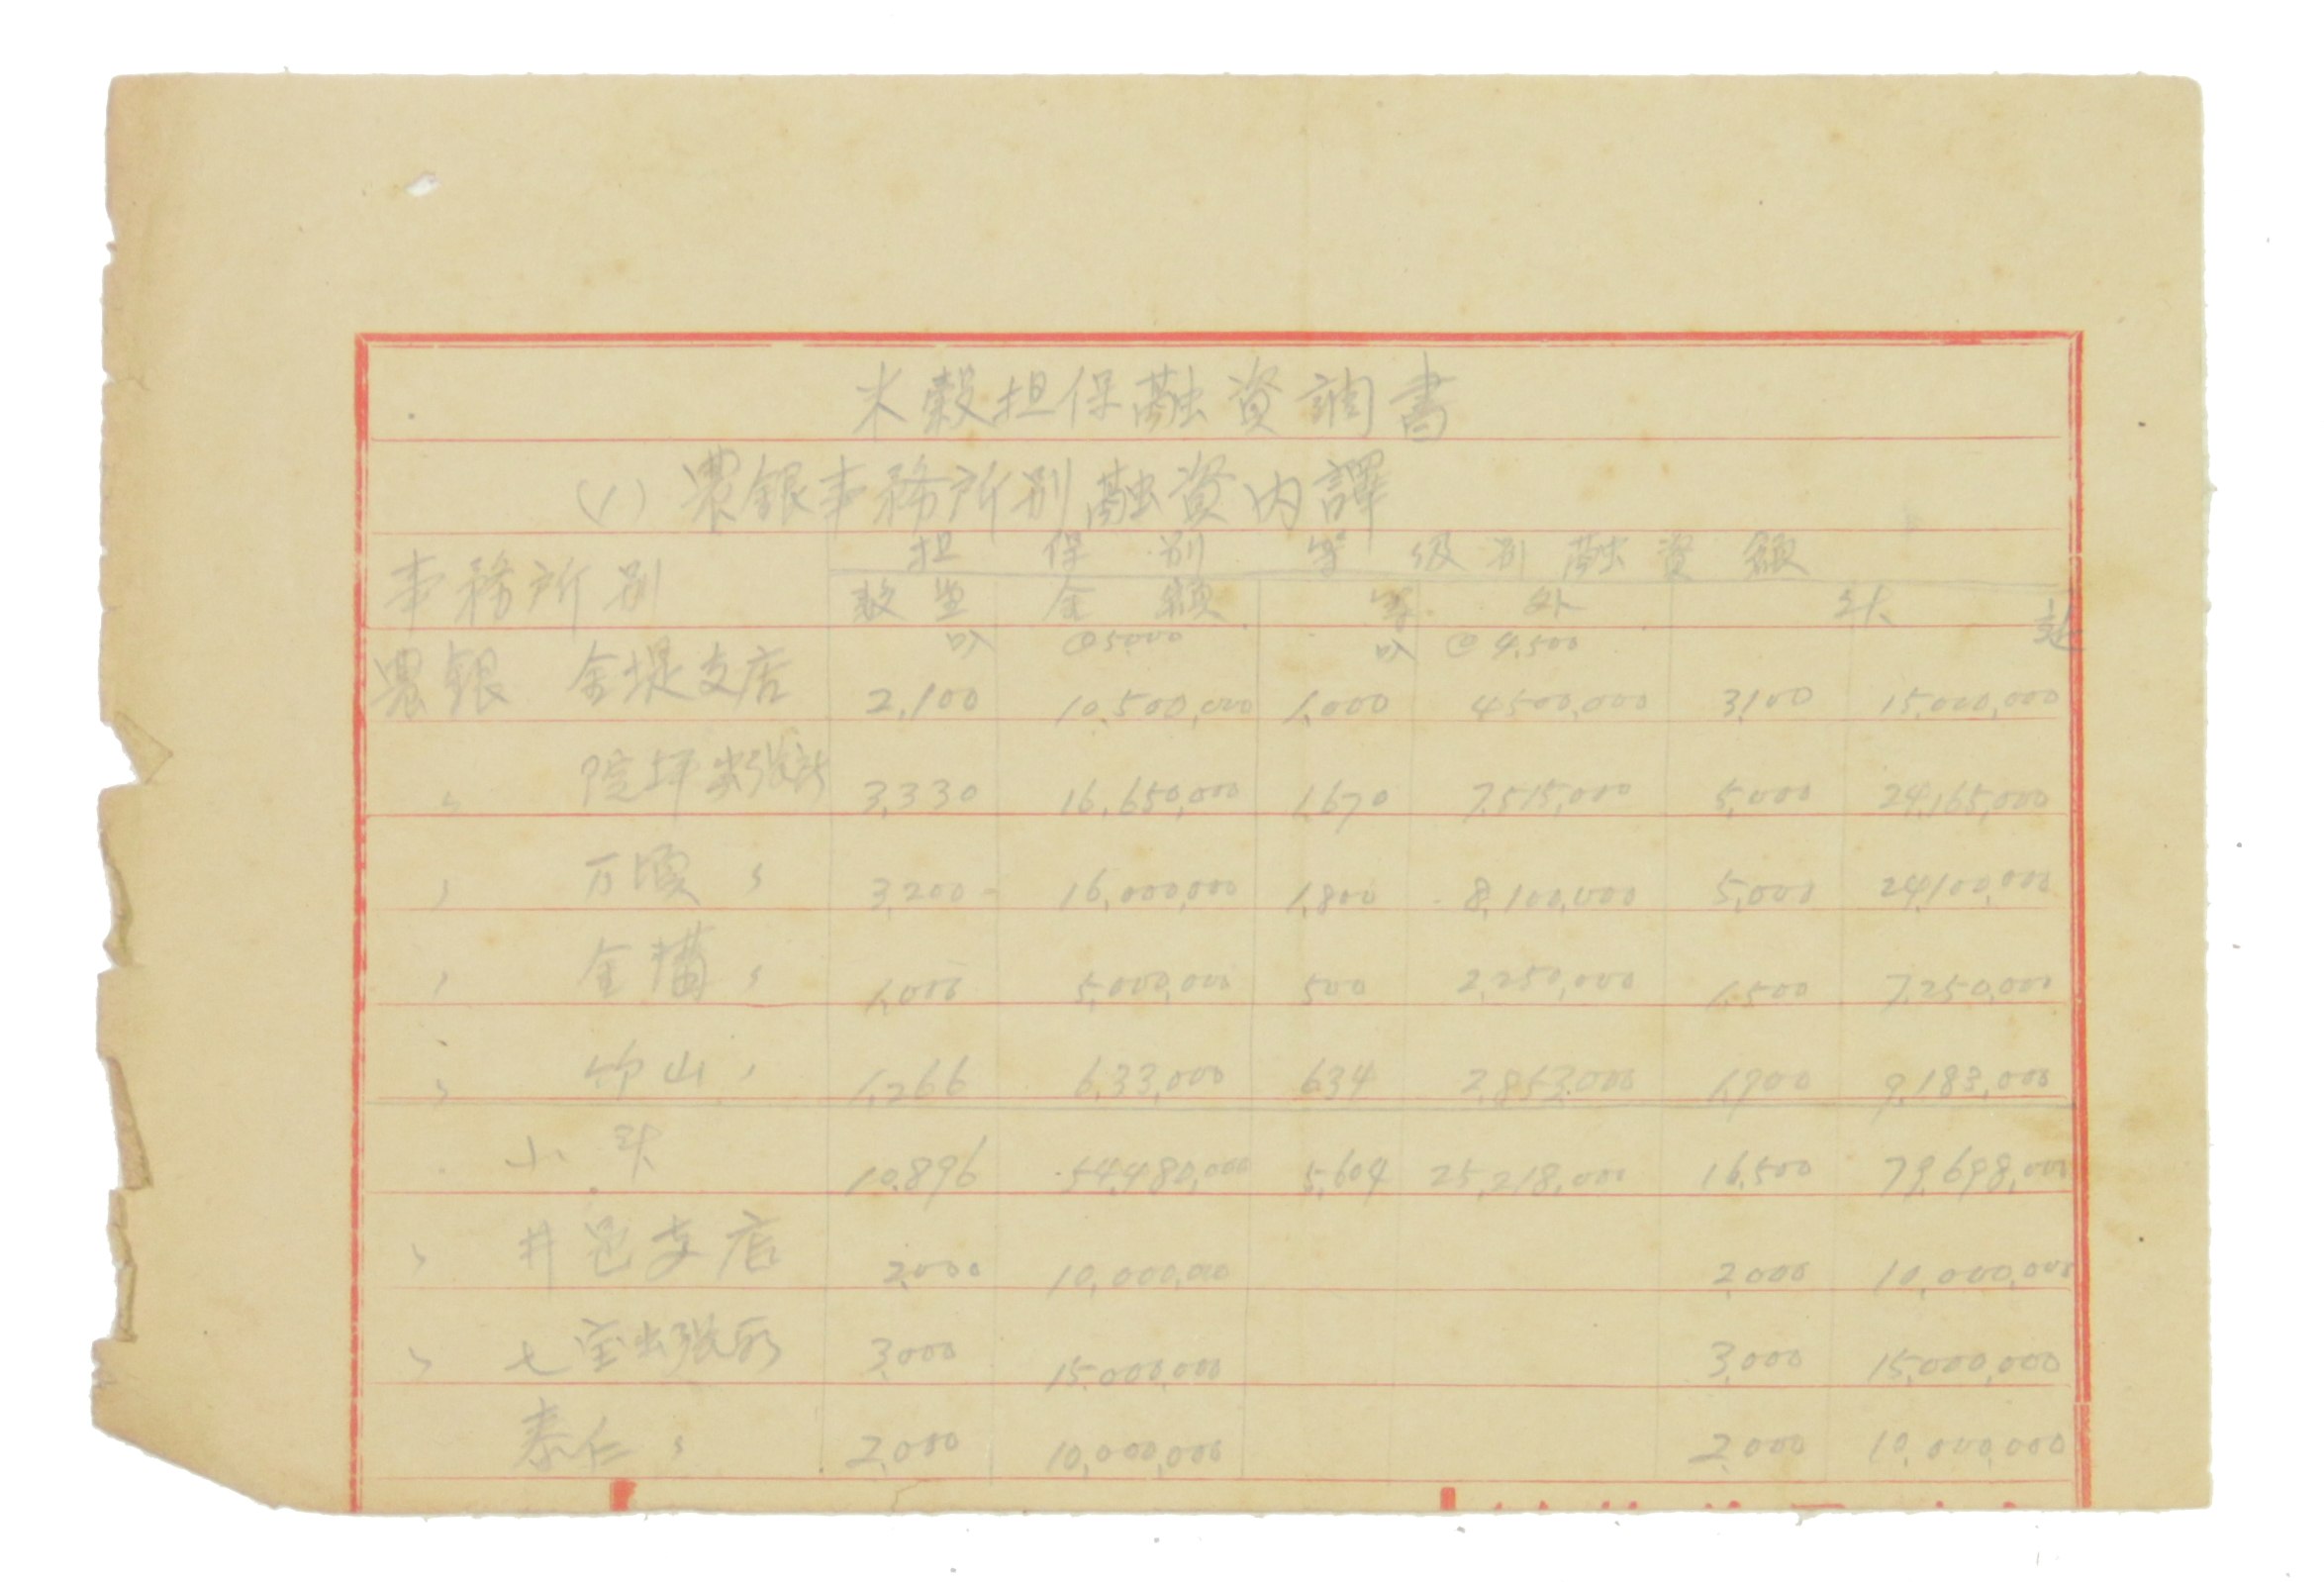 米穀担保融資調書
(1) 農銀事務所別融資内譯
担保別等級別融資額
事務所別 数量 金額 等外 計
叺 @5,000 叺 @4,500
農銀 金堤支店 2,100 10,500,000 1,000 4,500,000 3,100 15,000,000
〃 院坪出張所 3,330 16,650,000 1,670 7,515,000 5,000 24,165,000
〃 万頃 〃 3,200 16,000,000 1,800 8,100,000 5,000 24,100,000
〃 金溝 〃 1,000 5,000,000 500 2,250,000 1,500 7,250,000
〃 竹山 〃 1,266 6,33,000 634 2,853,000 1,900 9,183,000
小計 10,896 54,480,000 5,604 25,218,000 16,500 79,698,000
〃 井邑支店 2,000 10,000,000 2,000 10,000,000
〃 七宝出張所 3,000 15,000,000 3,000 15,000,000
泰仁 〃 2,000 10,000,000 2,000 10,000,000